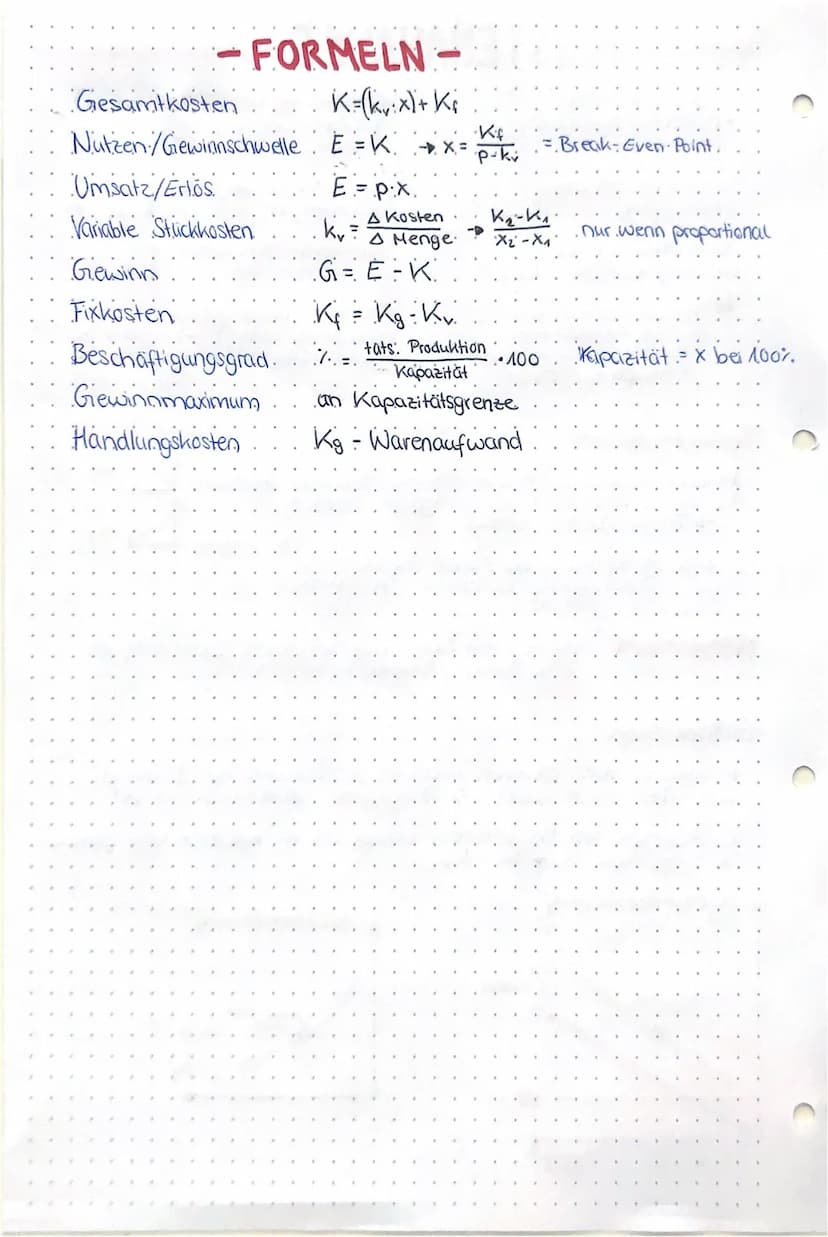 - FORMELN -
Gesamtkosten K=(kᵥ·x)+K_f
Nutzen-/Gewinnschwelle E = K → x = K_f / (p-kᵥ) = Break-Even-Point
Umsatz/Erlös E = p·x
Variable Stückkosten kᵥ = Δ Kosten / Δ Menge → (K₂-K₁) / (x₂-x₁) nur wenn proportional
Gewinn G = E - K
Fixkosten K_f = Kg - Kᵥ
Beschäftigungsgrad % = tats. Produktion / Kapazität · 100 Kapazität = x bei 100%
Gewinnmaximum an Kapazitätsgrenze
Handlungskosten Kg - Warenaufwand